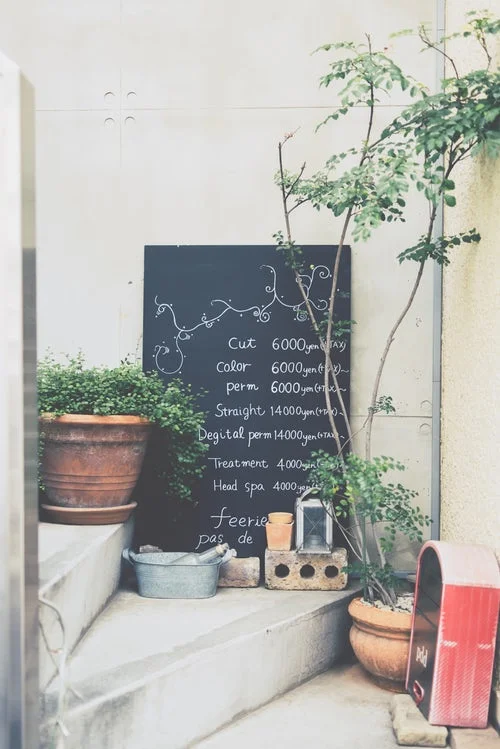 Cut 6000yen(+TAX)
Color 6000yen(+TAX)~
perm 6000yen(+TAX)~
Straight 14000yen(+TAX)~
Degital perm 14000yen(+TAX)~
Treatment 4000yen(+TAX)~
Head spa 4000yen
feerie
pas de